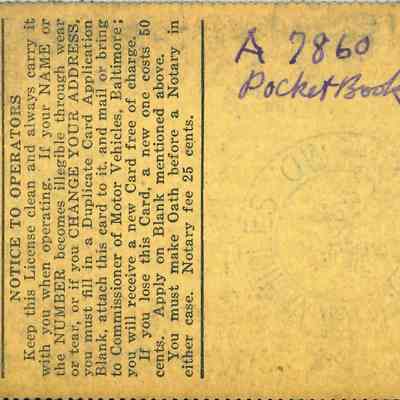 NOTICE TO OPERATORS
Keep this License clean and always carry it
with you when operating. If your NAME or
the NUMBER becomes illegible through wear
or tear, or if you CHANGE YOUR ADDRESS,
you must fill in a Duplicate Card Application
Blank, attach this card to it, and mail or bring
to Commissioner of Motor Vehicles, Baltimore;
you will receive a new Card free of charge.
If you lose this Card, a new one costs 50
cents. Apply on Blank mentioned above.
You must make Oath before a Notary in
either case. Notary fee 25 cents.
A 7860
PocketBook